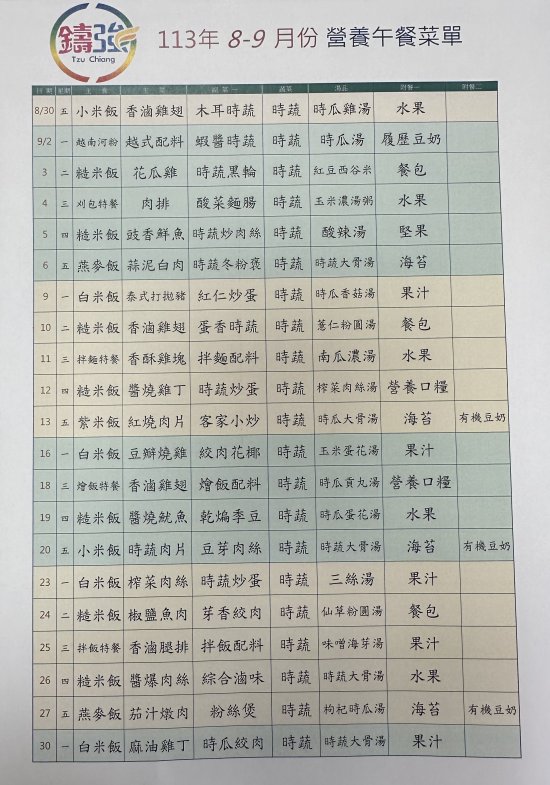 鑄強
Tzu Chiang
113年 8-9 月份 營養午餐菜單
日期 星期 主食 主菜 副菜一 蔬菜 湯品 附餐一 附餐二
8/30 五 小米飯 香滷雞翅 木耳時蔬 時蔬 時瓜雞湯 水果
9/2 一 越南河粉 越式配料 蝦醬時蔬 時蔬 時瓜湯 履歷豆奶
3 二 糙米飯 花瓜雞 時蔬黑輪 時蔬 紅豆西谷米 餐包
4 三 刈包特餐 肉排 酸菜麵腸 時蔬 玉米濃湯粥 水果
5 四 糙米飯 豉香鮮魚 時蔬炒肉絲 時蔬 酸辣湯 堅果
6 五 燕麥飯 蒜泥白肉 時蔬冬粉褒 時蔬 時蔬大骨湯 海苔
9 一 白米飯 泰式打拋豬 紅仁炒蛋 時蔬 時瓜香菇湯 果汁
10 二 糙米飯 香滷雞翅 蛋香時蔬 時蔬 薏仁粉圓湯 餐包
11 三 拌麵特餐 香酥雞塊 拌麵配料 時蔬 南瓜濃湯 水果
12 四 糙米飯 醬燒雞丁 時蔬炒蛋 時蔬 榨菜肉絲湯 營養口糧
13 五 紫米飯 紅燒肉片 客家小炒 時蔬 時瓜大骨湯 海苔 有機豆奶
16 一 白米飯 豆瓣燒雞 絞肉花椰 時蔬 玉米蛋花湯 果汁
18 三 燴飯特餐 香滷雞翅 燴飯配料 時蔬 時瓜貢丸湯 營養口糧
19 四 糙米飯 醬燒魷魚 乾煸季豆 時蔬 時瓜蛋花湯 水果
20 五 小米飯 時蔬肉片 豆芽肉絲 時蔬 時蔬大骨湯 海苔 有機豆奶
23 一 白米飯 榨菜肉絲 時蔬炒蛋 時蔬 三絲湯 果汁
24 二 糙米飯 椒鹽魚肉 芽香絞肉 時蔬 仙草粉圓湯 餐包
25 三 拌飯特餐 香滷腿排 拌飯配料 時蔬 味噌海芽湯 果汁
26 四 糙米飯 醬爆肉絲 綜合滷味 時蔬 時蔬大骨湯 水果
27 五 燕麥飯 茄汁燉肉 粉絲煲 時蔬 枸杞時瓜湯 海苔 有機豆奶
30 一 白米飯 麻油雞丁 時瓜絞肉 時蔬 時蔬大骨湯 果汁